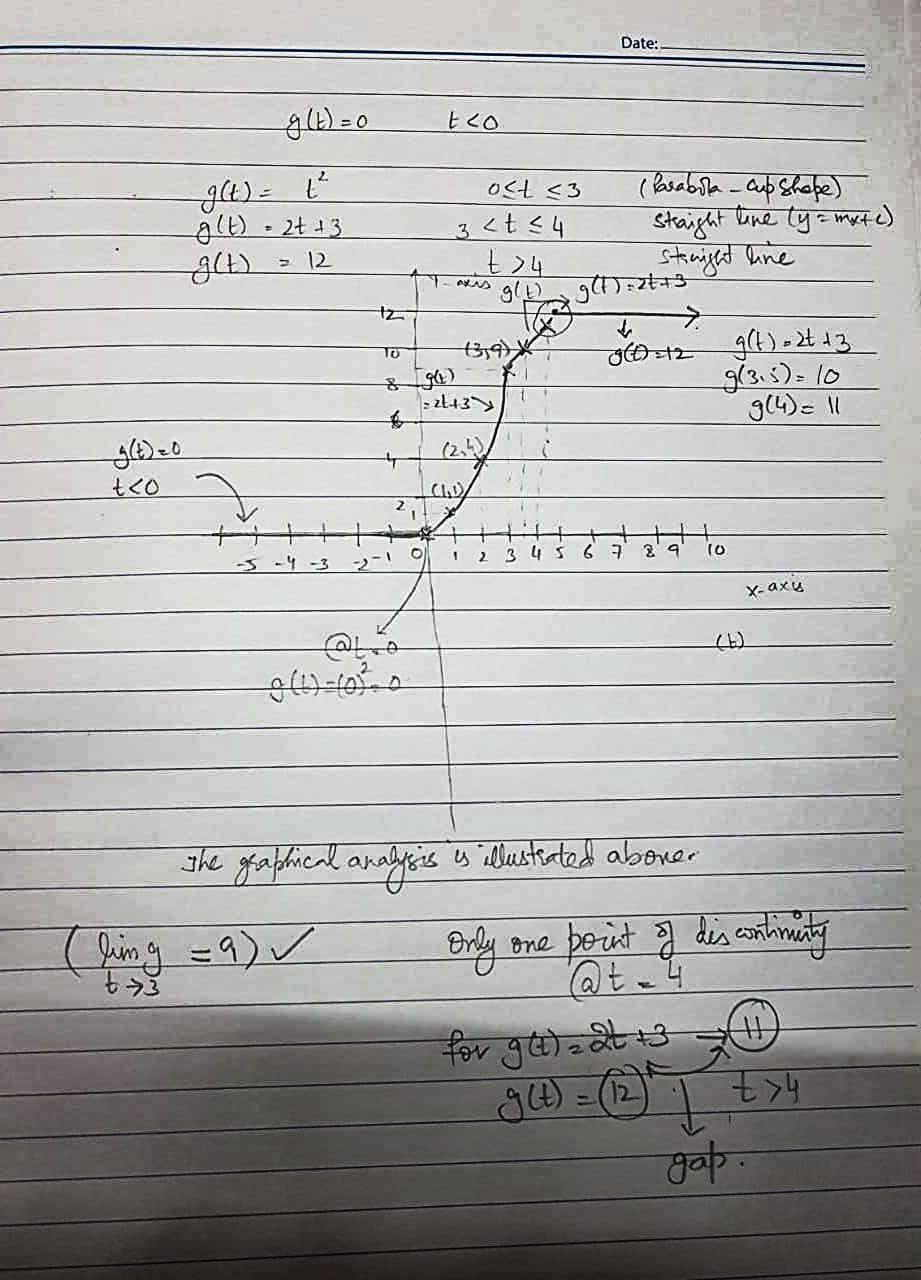 Date:
g(t) = 0 t < 0
g(t) = t² 0 ≤ t ≤ 3 (Parabola - cup shape)
g(t) = 2t + 3 3 < t ≤ 4 straight line (y = mx + c)
g(t) = 12 t > 4 straight line
Y-axis g(t) g(t) = 2t+3
12
10 (3,9) g(t) = 12 g(t) = 2t + 3
8 g(t) g(3.5) = 10
= 2t+3 g(4) = 11
6
g(t) = 0 4 (2,4)
t < 0 (1,1)
2
1
-5 -4 -3 -2 -1 0 1 2 3 4 5 6 7 8 9 10
x-axis
@t=0 (t)
g(t) = (0)² = 0
The graphical analysis is illustrated above.
(lim g = 9) ✓ Only one point of discontinuity
t→3 @t = 4
for g(t) = 2t + 3 → 11
g(t) = 12 t > 4
gap.